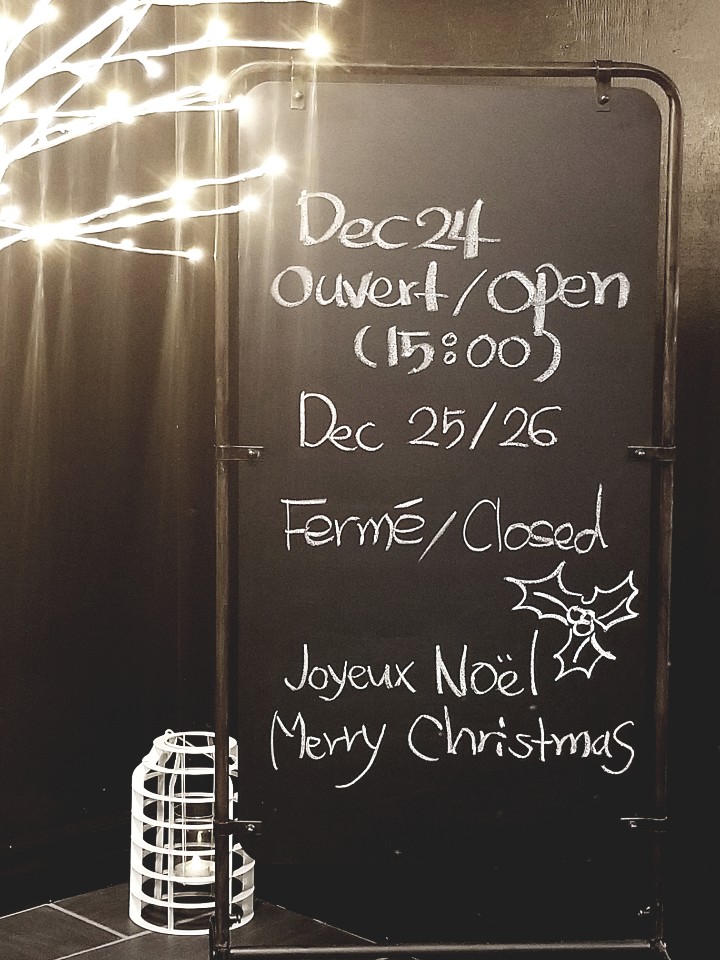 Dec 24
Ouvert/Open
(15:00)
Dec 25/26
Fermé/Closed
Joyeux Noël
Merry Christmas